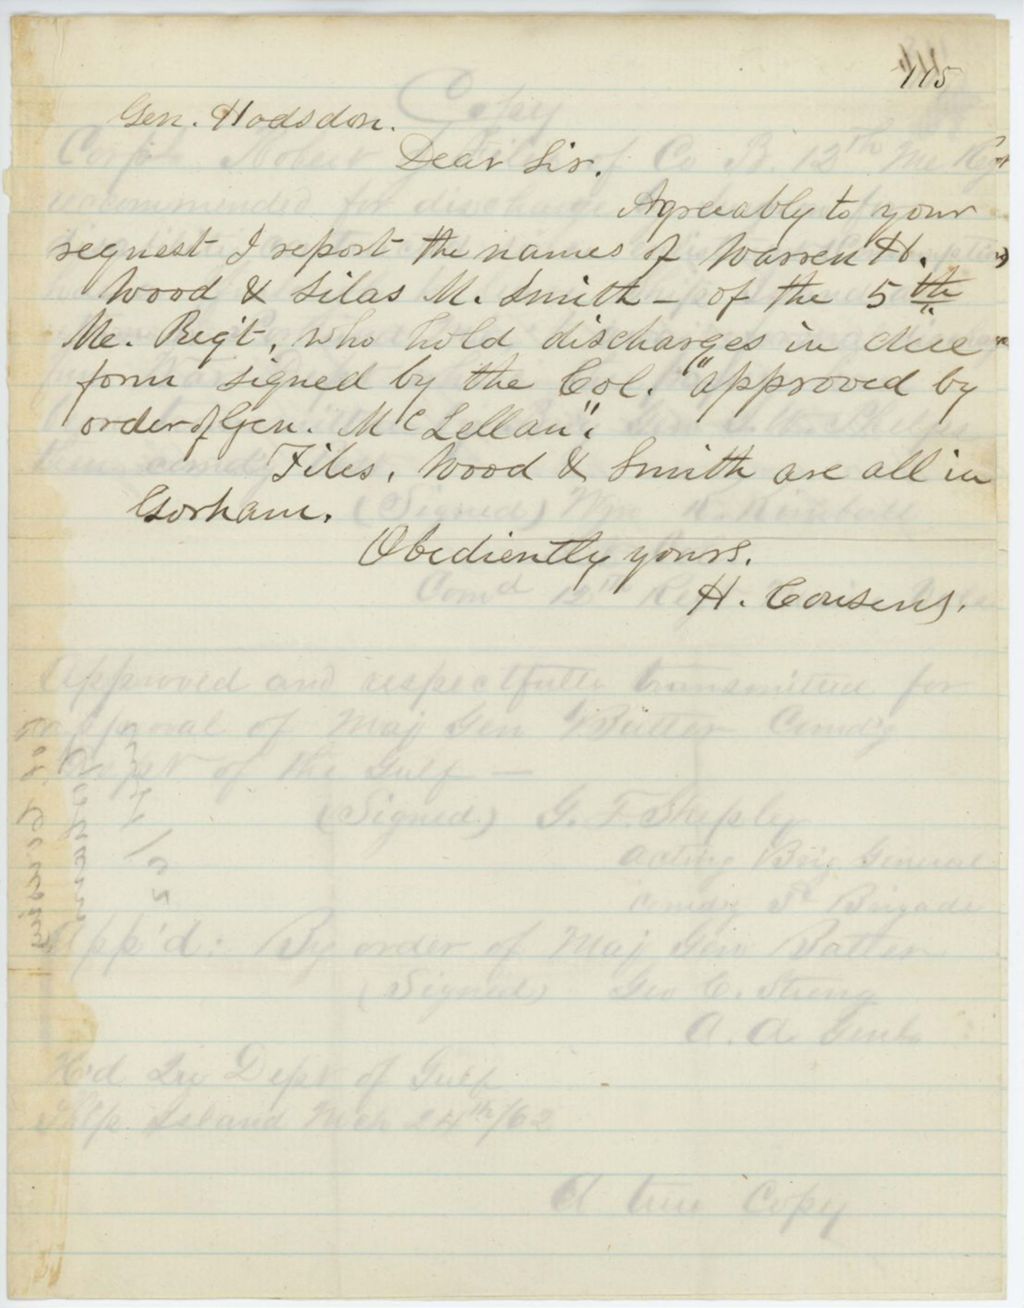 115
Gen. Hodsdon.
Dear Sir.
Agreeably to your
request I report the names of Warren H.
Wood & Silas M. Smith - of the 5th
Me. Reg't, who hold discharges in due
form signed by the Col. "approved by
order of Gen. McLellan".
Files, Wood & Smith are all in
Gorham.
Obediently yours.
H. Cousens.
Copy
Corpl. Robert Files of Co B. 12th Me Regt
recommended for discharge
(Signed) Wm K. Kimball
Comd 12th Reg
Approved and respectfully transmitted for
approval of Maj Gen Butler Comd'g
Dept of the Gulf -
(Signed) G. F. Shepley
Acting Brig General
Comdg Brigade
App'd: By order of Maj Gen Butler
(Signed) Geo C. Strong
A. A. Genl
Hd Qrs Dept of Gulf
Ship Island Mch 24th/62
A true Copy